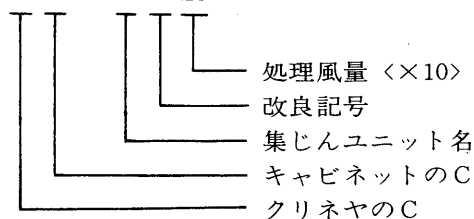 処理風量〈×10〉
改良記号
集じんユニット名
キャビネットのC
クリネヤのC